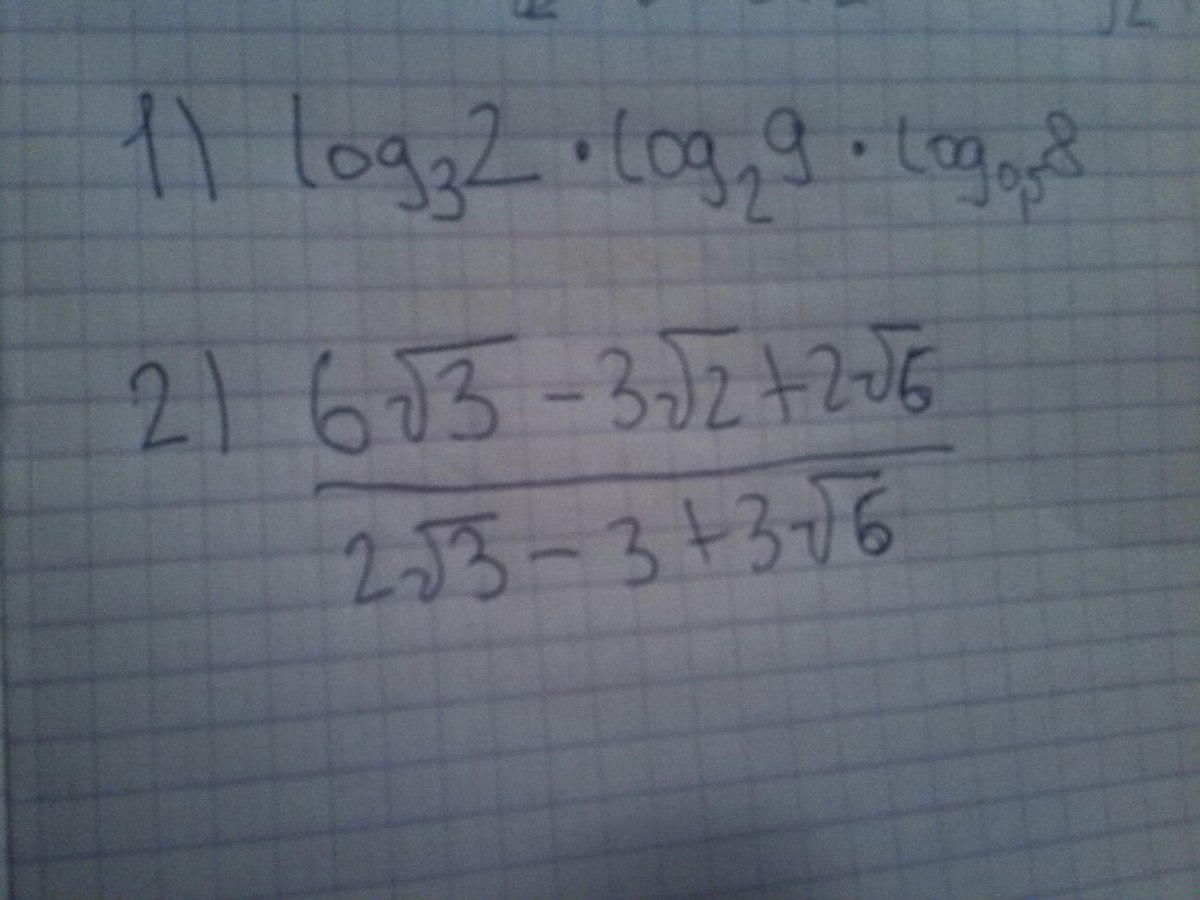 1) log₃2 · log₂9 · log₀,₅8
2) (6√3 - 3√2 + 2√6) / (2√3 - 3 + 3√6)